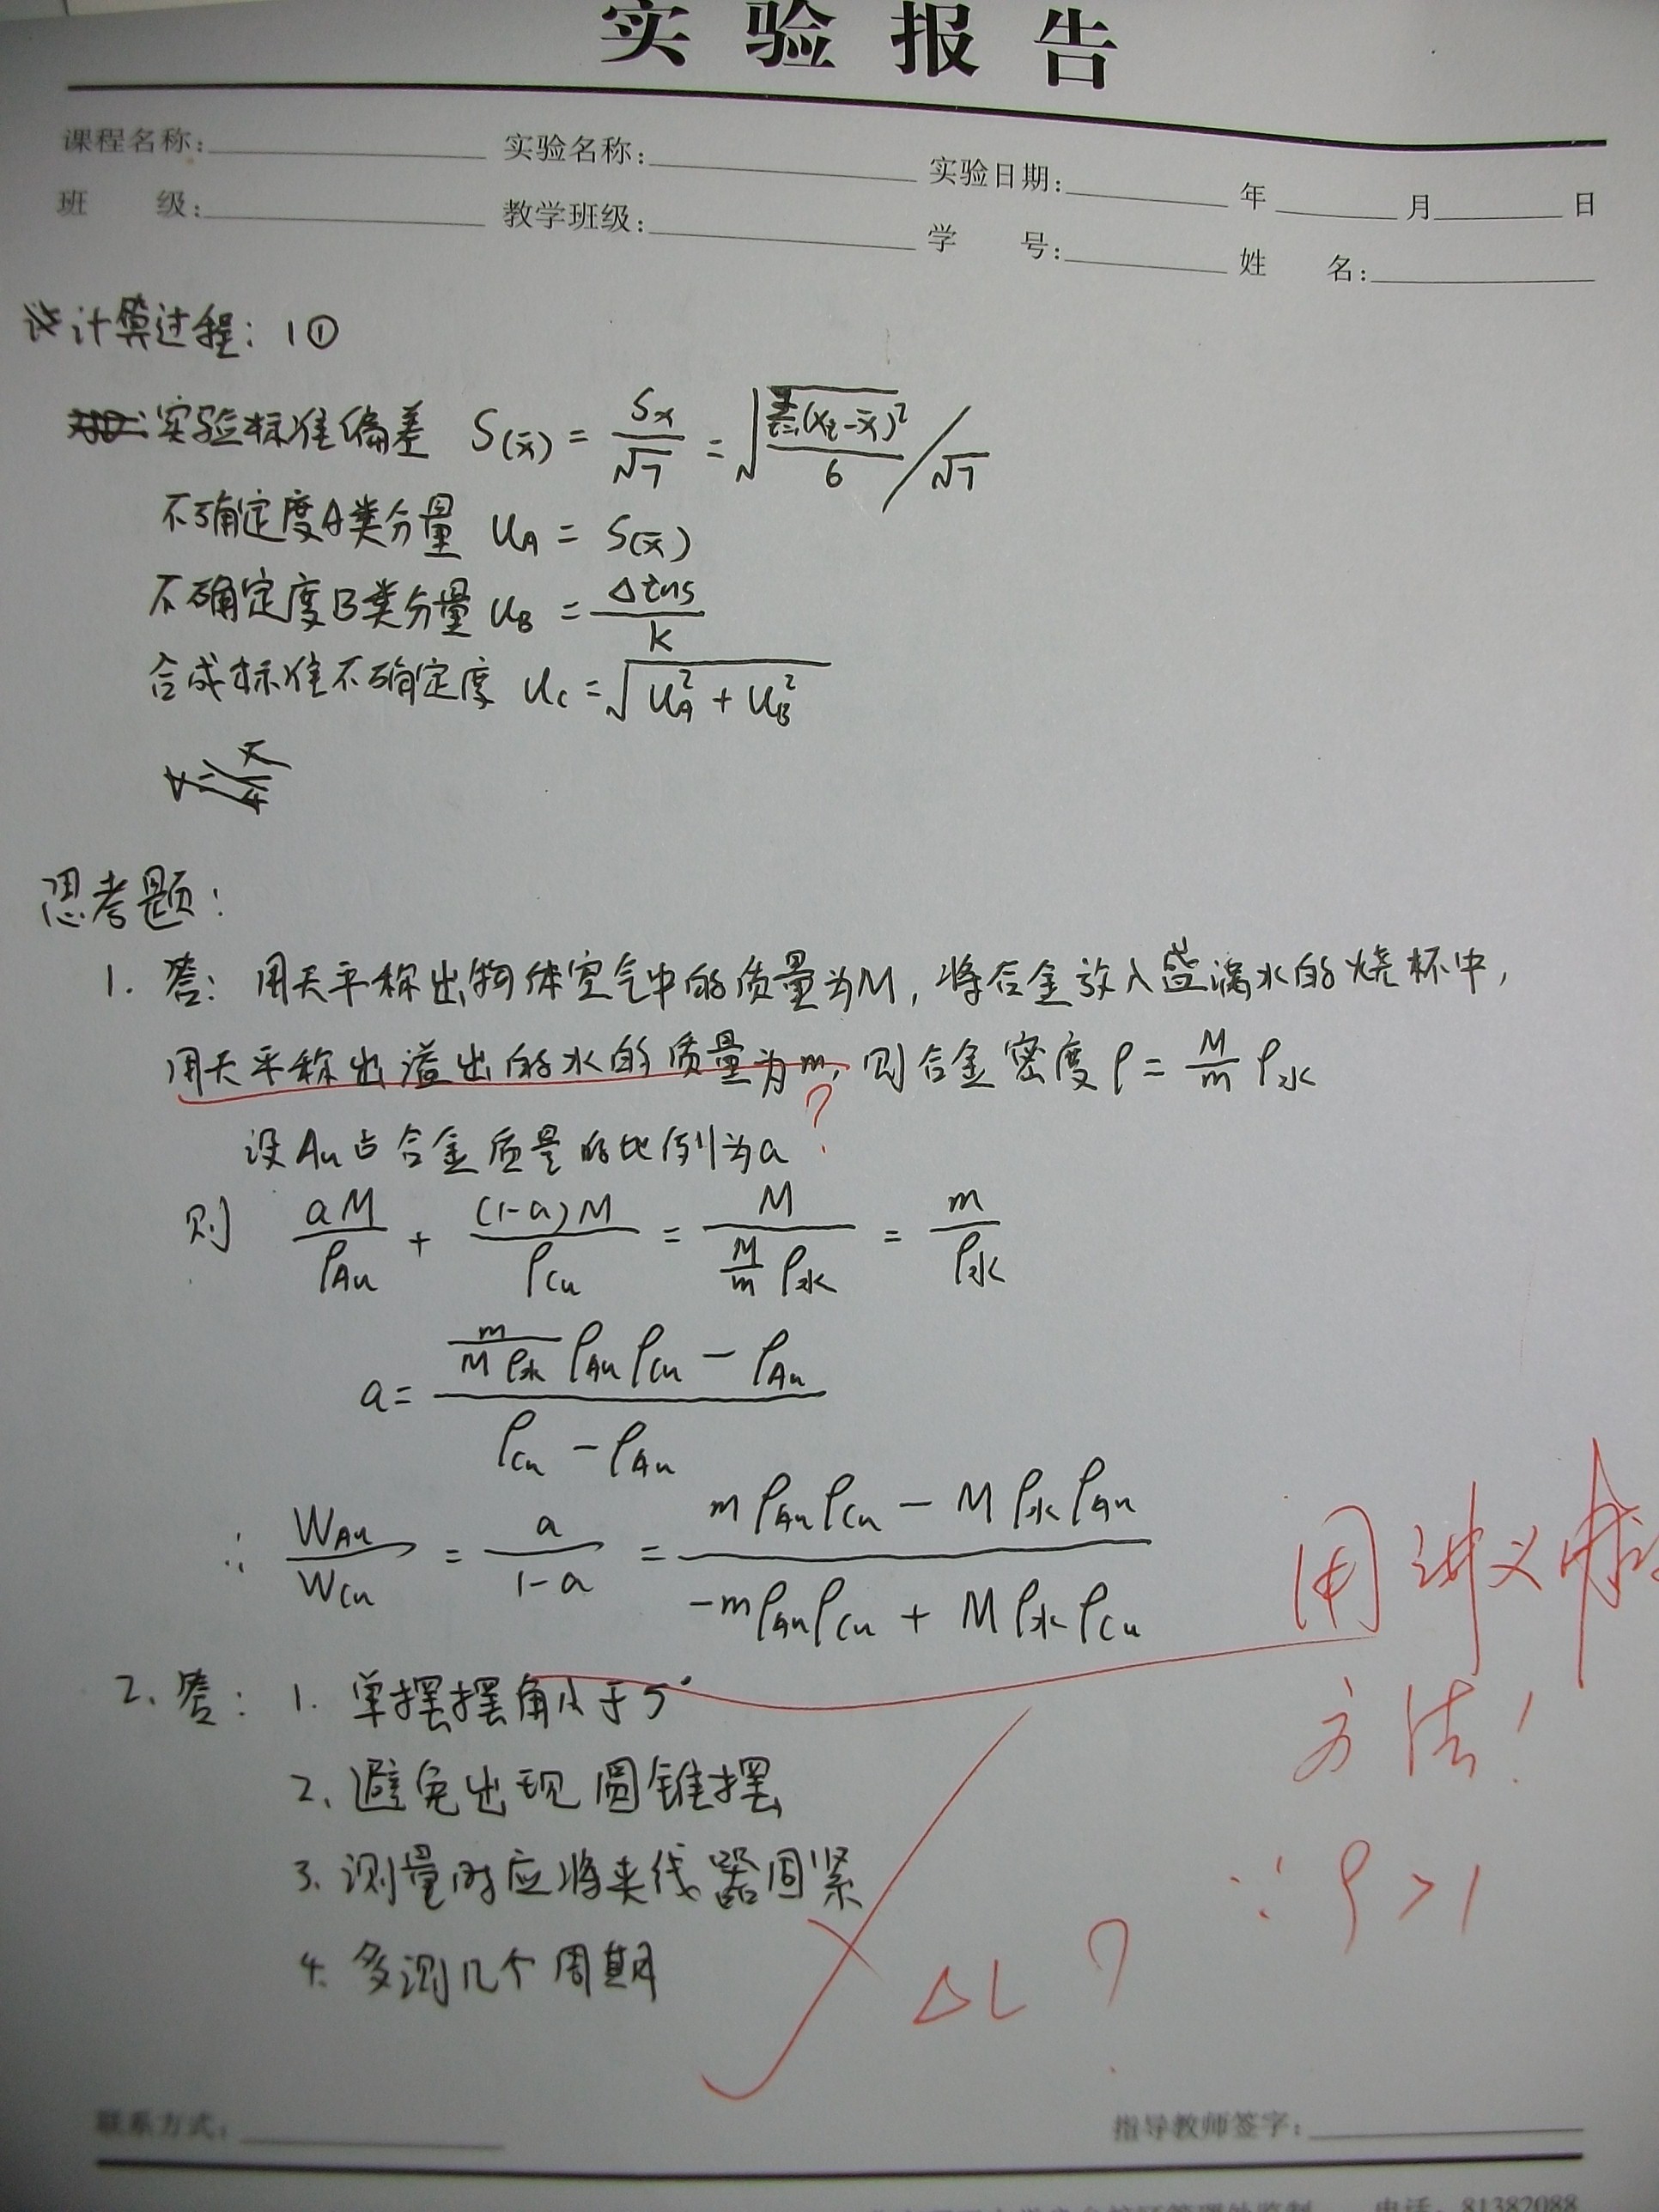 实验报告
课程名称: 实验名称: 实验日期: 年 月 日
班 级: 教学班级: 学 号: 姓 名:
计算过程: 1①
实验标准偏差 S(x̄) = Sx/√7 = √(Σ(xi-x̄)²/6)/√7
不确定度A类分量 uA = S(x̄)
不确定度B类分量 uB = Δins/k
合成标准不确定度 uc = √(uA² + uB²)
思考题:
1. 答: 用天平称出物体空气中的质量为M, 将合金放入盛满水的烧杯中,
用天平称出溢出的水的质量为m, 则合金密度ρ = M/m ρ水
?
设Au占合金质量的比例为a
则 aM/ρAu + (1-a)M/ρCu = M/(M/m ρ水) = m/ρ水
a = (m/(Mρ水) ρAuρCu - ρAu)/(ρCu - ρAu)
∴ WAu/WCu = a/(1-a) = (mρAuρCu - Mρ水ρAu)/(-mρAuρCu + Mρ水ρCu)
用讲义
方法!
∵ρ>1
2. 答: 1. 单摆摆角小于5°
2. 避免出现圆锥摆
3. 测量时应将夹线器固紧
4. 多测几个周期
ΔL?
联系方式: 指导教师签字:
电话: 81382088